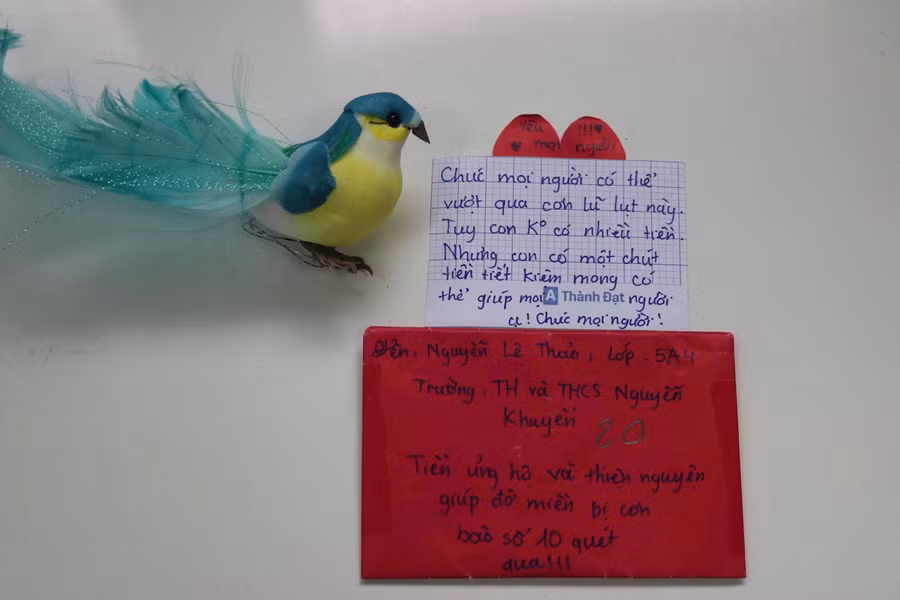 Yêu !!! ♥
♥ mọi người
Chúc mọi người có thể
vượt qua cơn lũ lụt này.
Tuy con K° có nhiều tiền.
Nhưng con có một chút
tiền tiết kiệm mong có
thể giúp mọi A Thành Đạt người
ạ! Chúc mọi người!
Tên, Nguyễn Lê Thảo, Lớp: 5A4
Trường, TH và THCS Nguyễn
Khuyến
20
Tiền ủng hộ và thiện nguyện
giúp đỡ miền bị cơn
bão số 10 quét
qua!!!